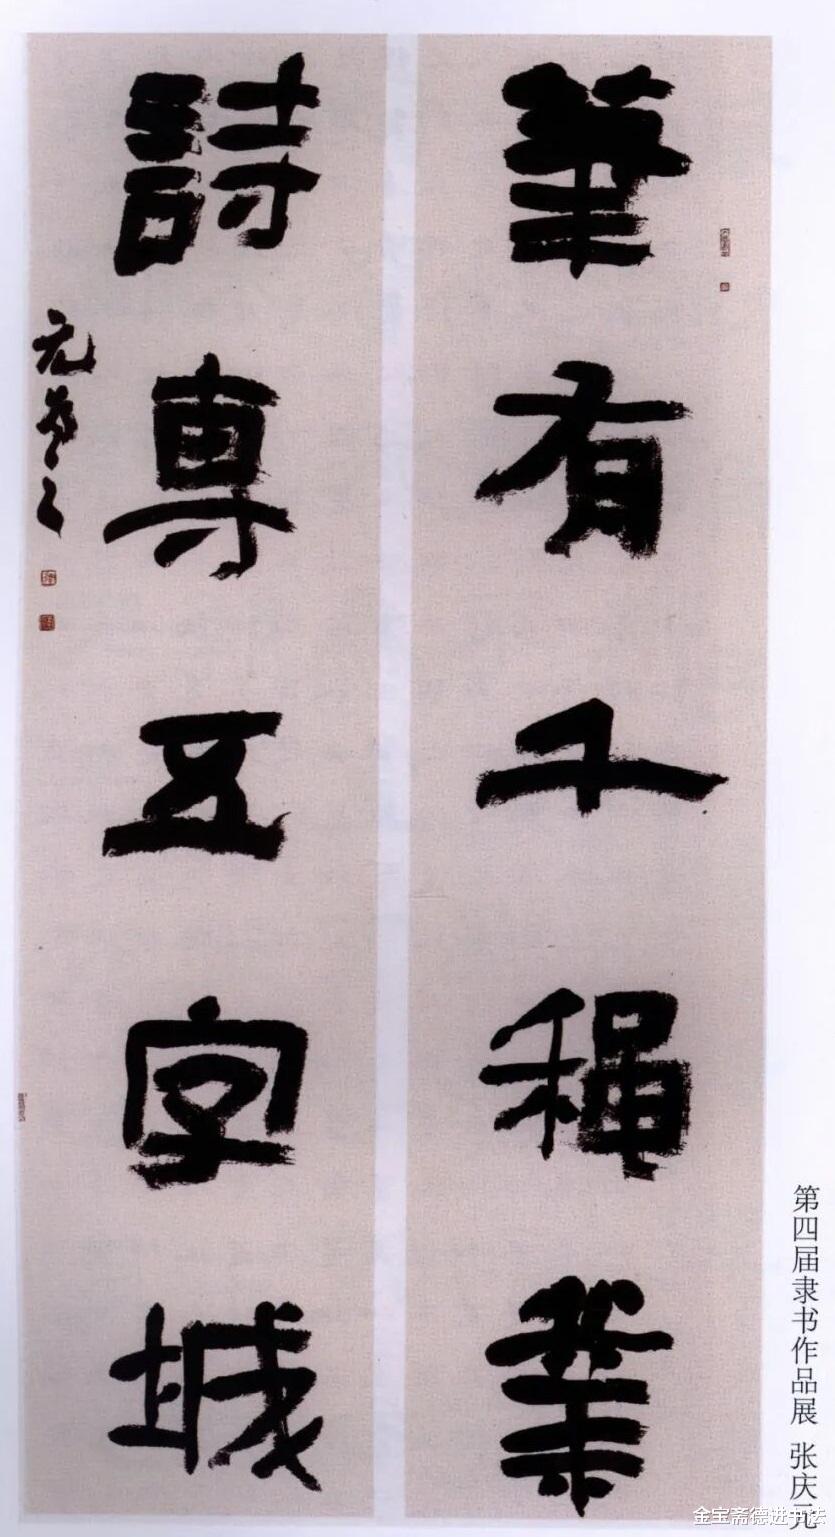 筆有千穐業
詩專五字城
元 之
第四届隶书作品展 张庆元
金宝斋德进书法